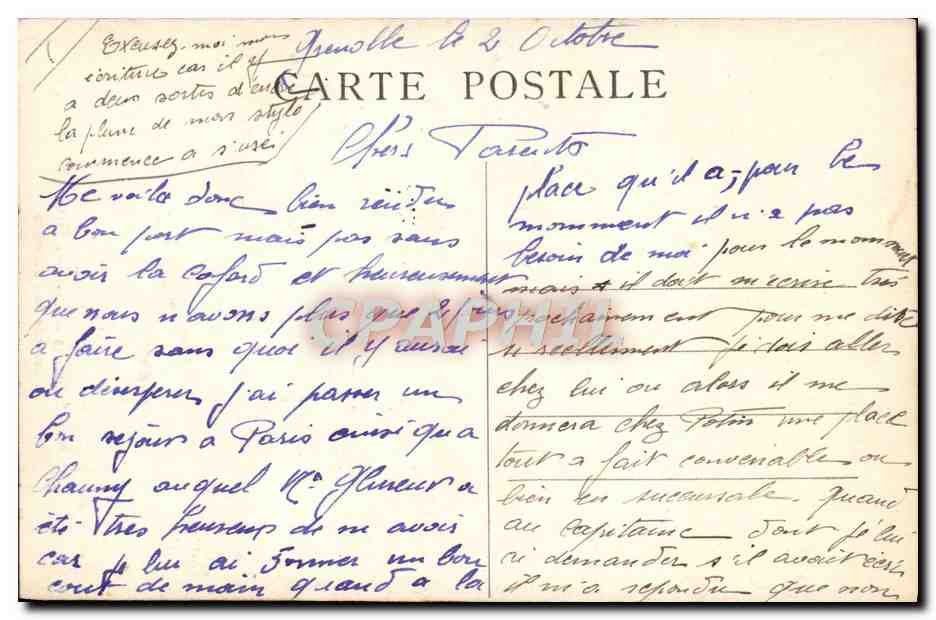 Excusez-moi mon
écriture car il y
a deux sortes d'encre
la plume de mon stylo
commence a s'usei
Grenoble le 2 Octobre
CARTE POSTALE
Chers Parents
Me voila donc bien rendus
a bon port mais pas sans
avoir la cafard et heureusement
que nous n'avons plus que 2 jours
a faire sans quoi il y aurai
ou diserperer j'ai passer un
bon sejour a Paris ainsi qu a
Chauny auquel Mr a
été tres heureux de m avoir
car je lui ai donner un bon
cout de main quand a la
place qu'il a, pour le
momment il n'a pas
besoin de moi pour le momment
mais il doit m'ecrire tres
prochainement pour me dire
si reellement je dois aller
chez lui ou alors il me
donnera chez Potin une place
tout a fait convenable ou
bien en succursale. Quand
au capitaine dont je lui
ai demander s'il avait écri
il m'a repondu que non
CPAPHIL